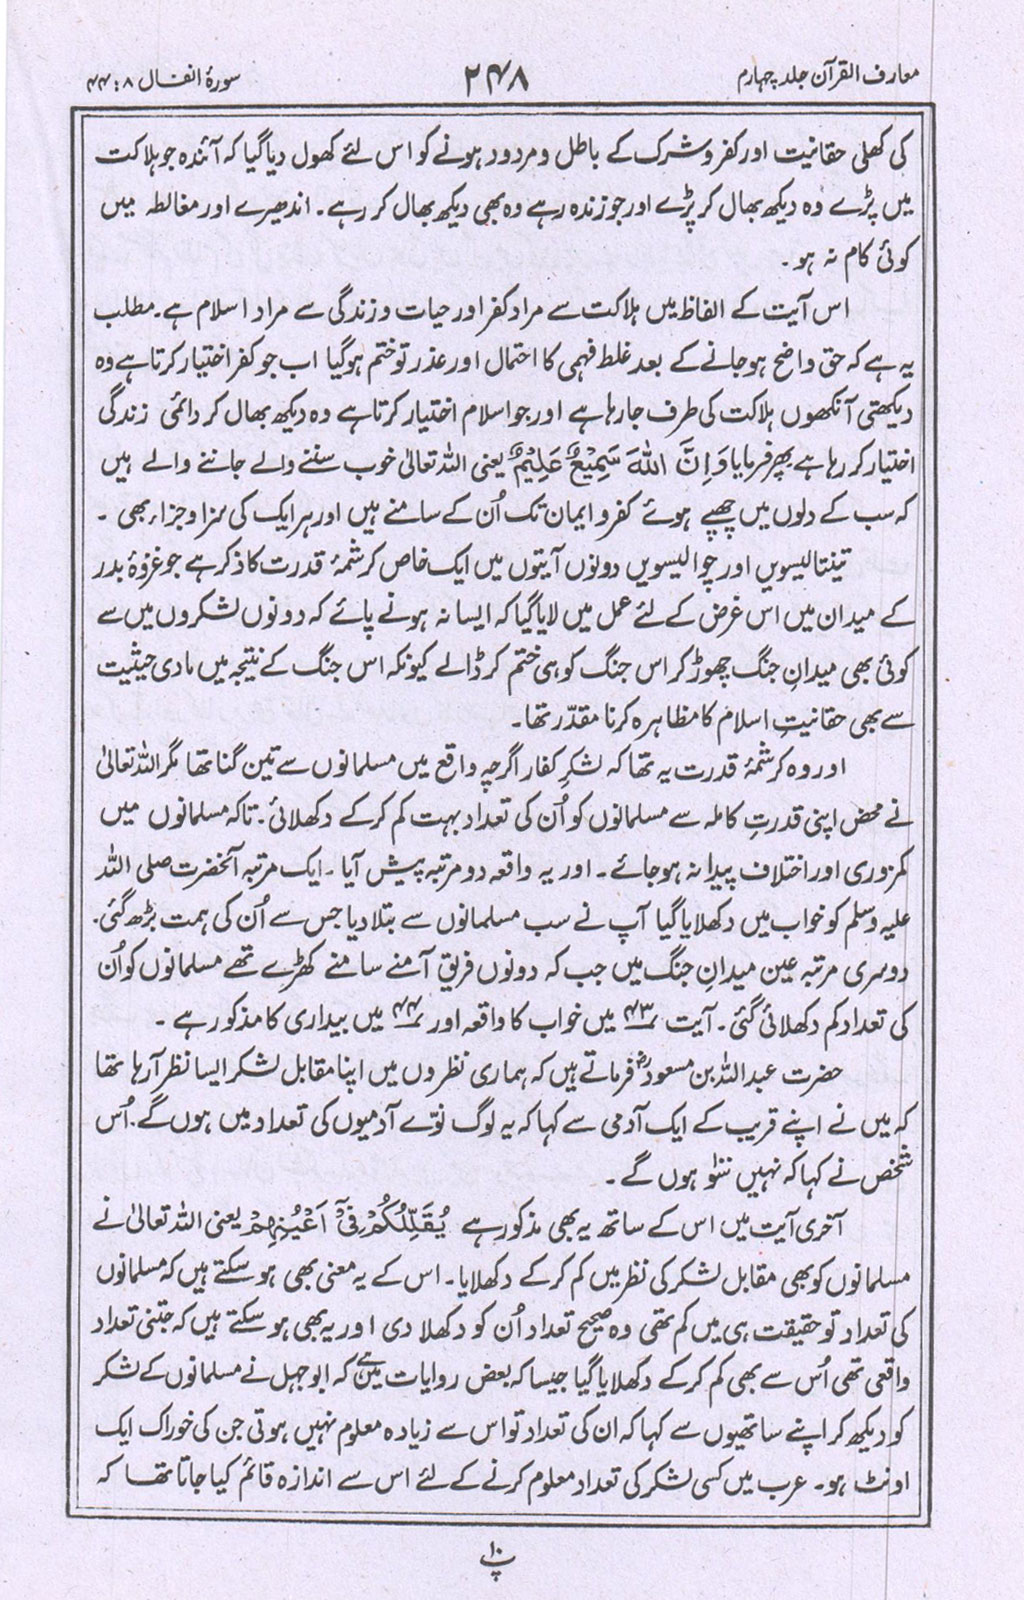 معارف القرآن جلد چہارم
۲۴۸
سورۂ انفال ۸ : ۴۴
کی کھلی حقانیت اور کفر و شرک کے باطل و مردود ہونے کو اس لئے کھول دیا گیا کہ آئندہ جو ہلاکت
میں پڑے وہ دیکھ بھال کر پڑے اور جو زندہ رہے وہ بھی دیکھ بھال کر رہے۔ اندھیرے اور مغالطہ میں
کوئی کام نہ ہو۔
اس آیت کے الفاظ میں ہلاکت سے مراد کفر اور حیات و زندگی سے مراد اسلام ہے۔ مطلب
یہ ہے کہ حق واضح ہو جانے کے بعد غلط فہمی کا احتمال اور عذر تو ختم ہو گیا اب جو کفر اختیار کرتا ہے وہ
دیکھتی آنکھوں ہلاکت کی طرف جا رہا ہے اور جو اسلام اختیار کرتا ہے وہ دیکھ بھال کر دائمی زندگی
اختیار کر رہا ہے پھر فرمایا وَاِنَّ اللّٰهَ سَمِيْعٌ عَلِيْمٌ یعنی اللہ تعالیٰ خوب سننے والے جاننے والے ہیں
کہ سب کے دلوں میں چھپے ہوئے کفر و ایمان تک اُن کے سامنے ہیں اور ہر ایک کی سزا و جزاء بھی ۔
تینتالیسویں اور چوالیسویں دونوں آیتوں میں ایک خاص کرشمۂ قدرت کا ذکر ہے جو غزوۂ بدر
کے میدان میں اس غرض کے لئے عمل میں لایا گیا کہ ایسا نہ ہونے پائے کہ دونوں لشکروں میں سے
کوئی بھی میدانِ جنگ چھوڑ کر اس جنگ کو ہی ختم کر ڈالے کیونکہ اس جنگ کے نتیجہ میں مادی حیثیت
سے بھی حقانیتِ اسلام کا مظاہرہ کرنا مقدّر تھا۔
اور وہ کرشمۂ قدرت یہ تھا کہ لشکرِ کفار اگرچہ واقع میں مسلمانوں سے تین گنا تھا مگر اللہ تعالیٰ
نے محض اپنی قدرتِ کاملہ سے مسلمانوں کو اُن کی تعداد بہت کم کرکے دکھلائی۔ تاکہ مسلمانوں میں
کمزوری اور اختلاف پیدا نہ ہو جائے۔ اور یہ واقعہ دو مرتبہ پیش آیا۔ ایک مرتبہ آنحضرت صلی اللہ
علیہ وسلم کو خواب میں دکھلایا گیا آپ نے سب مسلمانوں سے بتلا دیا جس سے اُن کی ہمت بڑھ گئی.
دوسری مرتبہ عین میدانِ جنگ میں جب کہ دونوں فریق آمنے سامنے کھڑے تھے مسلمانوں کو اُن
کی تعداد کم دکھلائی گئی۔ آیت ۴۳ میں خواب کا واقعہ اور ۴۴ میں بیداری کا مذکور ہے ۔
حضرت عبداللہ بن مسعودؓ فرماتے ہیں کہ ہماری نظروں میں اپنا مقابل لشکر ایسا نظر آ رہا تھا
کہ میں نے اپنے قریب کے ایک آدمی سے کہا کہ یہ لوگ نوّے آدمیوں کی تعداد میں ہوں گے. اُس
شخص نے کہا کہ نہیں سَو ہوں گے ۔
آخری آیت میں اس کے ساتھ یہ بھی مذکور ہے يُقَلِّلُكُمْ فِيْٓ اَعْيُنِهِمْ یعنی اللہ تعالیٰ نے
مسلمانوں کو بھی مقابل لشکر کی نظر میں کم کر کے دکھلایا۔ اس کے یہ معنی بھی ہو سکتے ہیں کہ مسلمانوں
کی تعداد تو حقیقت ہی میں کم تھی وہ صحیح تعداد اُن کو دکھلا دی اور یہ بھی ہو سکتے ہیں کہ جتنی تعداد
واقعی تھی اُس سے بھی کم کر کے دکھلایا گیا جیسا کہ بعض روایات میں ہے کہ ابوجہل نے مسلمانوں کے لشکر
کو دیکھ کر اپنے ساتھیوں سے کہا کہ ان کی تعداد تو اس سے زیادہ معلوم نہیں ہوتی جن کی خوراک ایک
اونٹ ہو۔ عرب میں کسی لشکر کی تعداد معلوم کرنے کے لئے اس سے اندازہ قائم کیا جاتا تھا کہ
پ۱۰